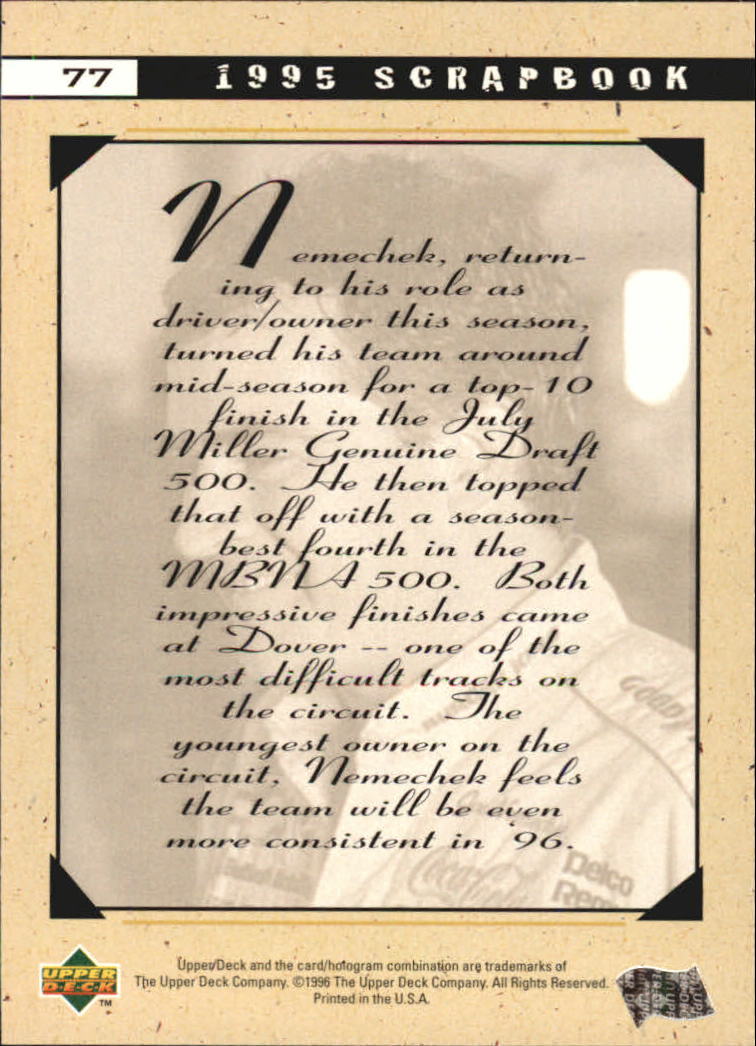 77 1995 SCRAPBOOK
Nemechek, return-
ing to his role as
driver/owner this season,
turned his team around
mid-season for a top-10
finish in the July
Miller Genuine Draft
500. He then topped
that off with a season-
best fourth in the
MBNA 500. Both
impressive finishes came
at Dover -- one of the
most difficult tracks on
the circuit. The
youngest owner on the
circuit, Nemechek feels
the team will be even
more consistent in '96.
GOODY
Coca-Cola
Delco
Rem
UPPER
DECK
TM
Upper Deck and the card/hologram combination are trademarks of
The Upper Deck Company. ©1996 The Upper Deck Company. All Rights Reserved.
Printed in the U.S.A.